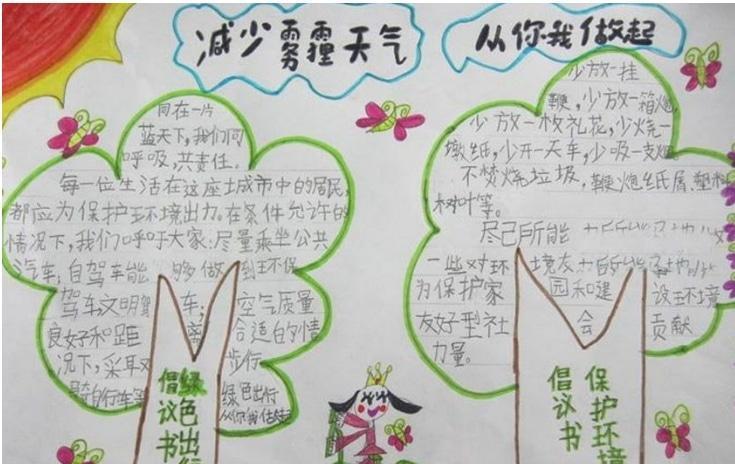 减少雾霾天气
从你我做起
同在一片
蓝天下,我们同
呼吸,共责任。
每一位生活在这座城市中的居民,
都应为保护环境出力。在条件允许的
情况下,我们呼吁大家:尽量乘坐公共
汽车;自驾车能够做到环保
驾车文明驾车;空气质量
良好和距离合适的情
况下,采取步行
骑自行车等绿色出行
从你我做起
绿色出行
倡议书
少放一挂
鞭,少放一箱炮,
少放一枚礼花,少烧一
墩纸,少开一天车,少吸一支烟,
不焚烧垃圾,鞭炮纸屑、塑料
树叶等。
尽己所能
一些对环境友
为保护家园和建设环境
友好型社会贡献
力量。
保护环境
倡议书